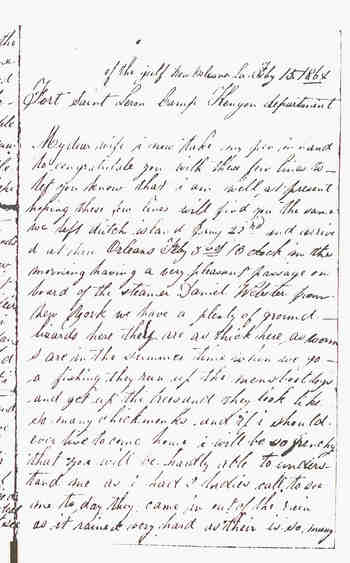 of the gulf New Orleans La Feby 15. 1864
Fort Saint Leon Camp Kenyon department
My dear wife i now take my pen in hand
to congratulate you with these few lines to
let you know that i am well at present
hoping these few lines will find you the same
we left dutch island Jany 23rd and arrive
d at New Orleans Feby 3rd of 10 clock in the
morning having a very pleasant passage on
board of the steamer Daniel Webster from
New York we have a plenty of ground
lizards here they are as thick here as worm
s are in the summer time when we go
a fishing they run up the mens boot legs
and get up the trees and they look like
so many chickmonks and if i should
ever live to come home i will be so frenchy
that you will be hardly able to unders
tand me as i had 2 ladies call to see
me to day they came in out of the rain
as it rained very hard as their is so many